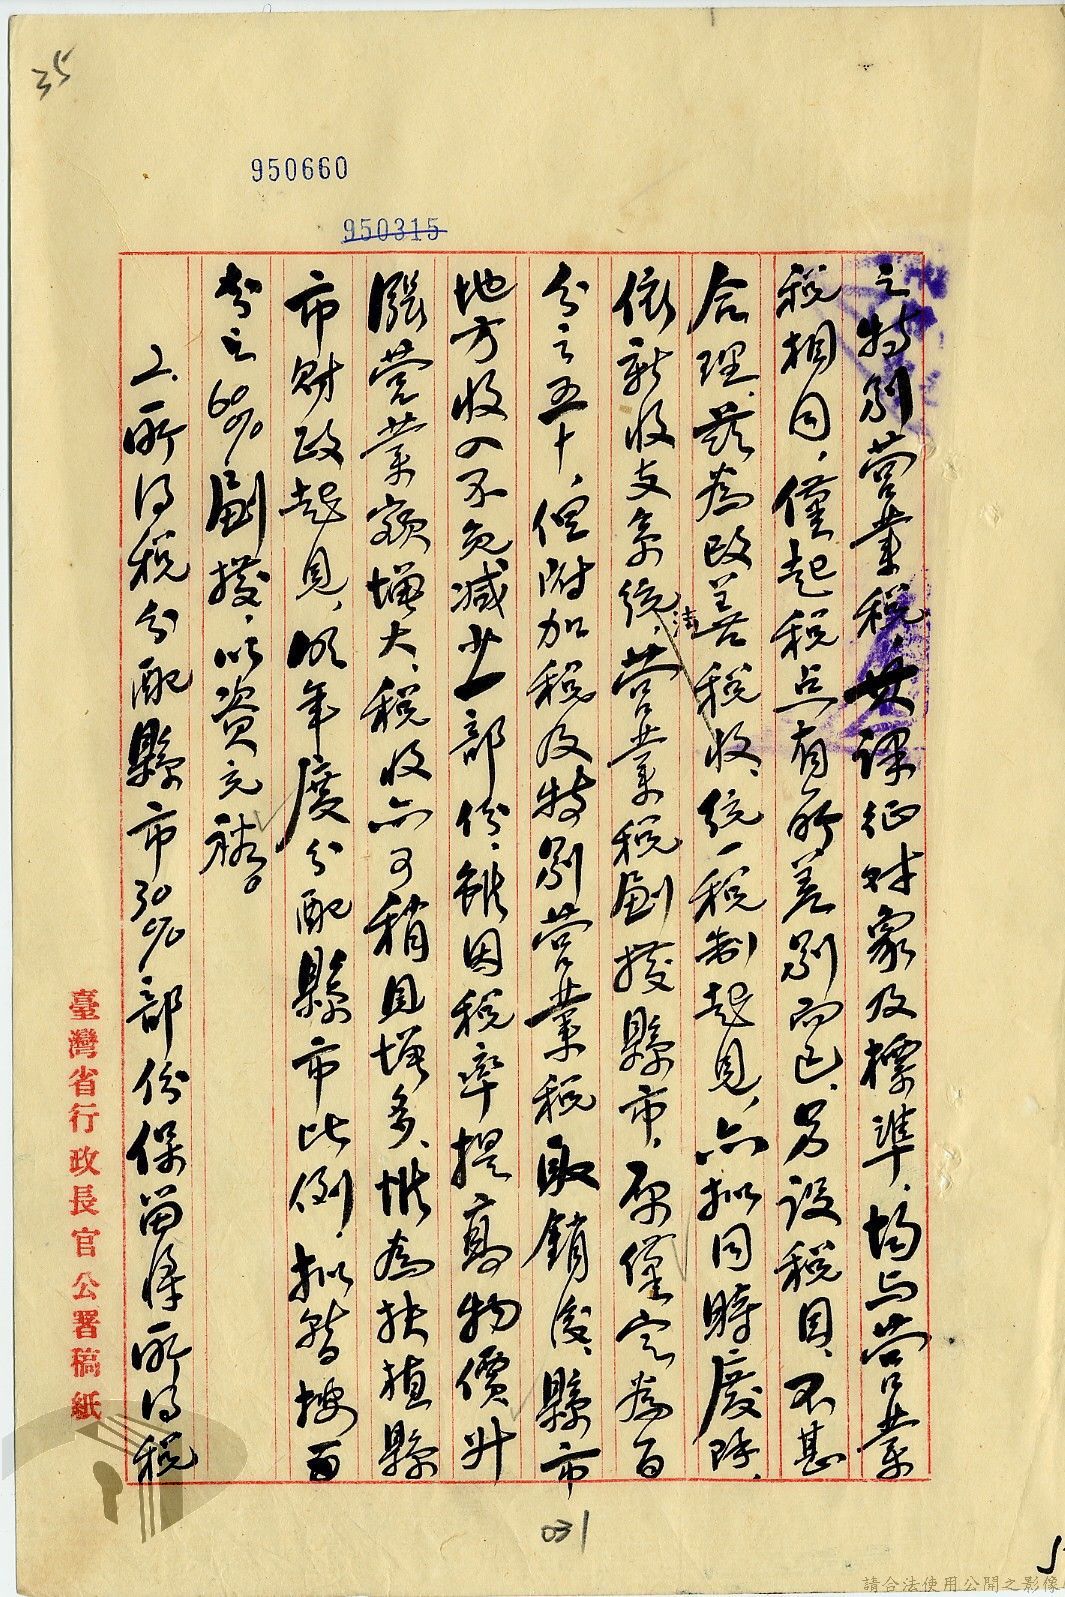 35
950660
950315
之特別營業稅,其課征对象及標準,均与营業
稅相同,僅起稅点有所差別而已,另設稅目,不甚
合理,茲為改善稅收,統一稅制起見,亦拟同時廢除,
依新收支系統法,营業稅劃撥縣市,原僅定為百
分之五十,但附加稅及特別营業稅取銷後,縣市
地方收入不免減少一部份,雖因稅率提高物價升
漲营業額增大,稅收亦可稍見增多,惟為扶植縣
市財政起見,明年度分配縣市比例,拟暫按百
分之60%劃撥,以資充裕。
2.所得稅分配縣市30%部份保留係所得稅
臺灣省行政長官公署稿紙
031
請合法使用公開之影像